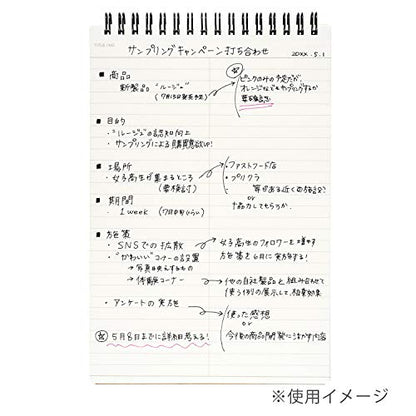 サンプリングキャンペーン打ち合わせ 20XX.5.1
■ 商品
新製品 "ルージュ"
ピンクのみの予定だが、
オレンジなどもサンプリングするか
要確認
■ 目的
・"ルージュ"の認知向上
・サンプリングによる購買意欲UP!
■ 場所
・女子高生が集まるところ
(要検討)
・ファストフード店
・プリクラ
or
■ 期間
・1 week
■ 施策
・SNSでの拡散
女子高生のフォロワーを増やす
施策を6月に実施する!
・"かわいい"コーナーの設置
→ 体験コーナー
他の自社製品と組み合わせて
使う例の展示して、相乗効果
・アンケートの実施
・使った感想
or
今後の商品開発に活かす内容
5月8日までに詳細考える!
※使用イメージ